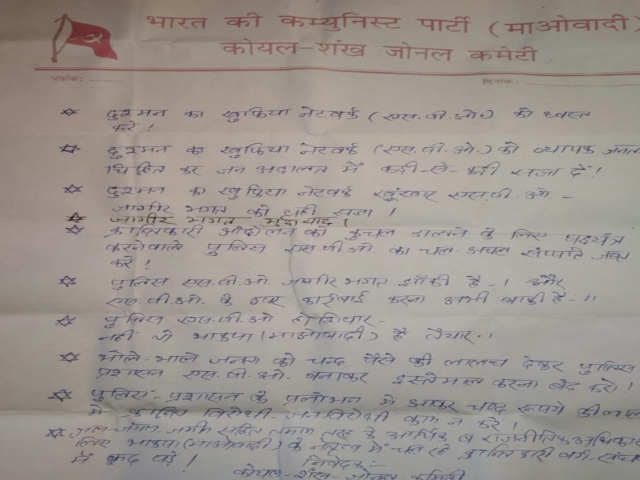 भारत की कम्युनिस्ट पार्टी (माओवादी)
कोयल-शंख जोनल कमेटी
पत्रांक:
दिनांक
दुश्मन का खुफिया नेटवर्क (एस.पी.ओ.) को ध्वस्त
करें!
दुश्मन का खुफिया नेटवर्क (एस.पी.ओ.) को व्यापक जनता
चिह्नित कर जन अदालत में कड़ी-से-कड़ी सजा दें!
दुश्मन का खुफिया नेटवर्क खूंखार एस.पी.ओ.-
जागीर भगत को सजा!
जागीर भगत मुर्दाबाद!
क्रांतिकारी आंदोलन को कुचल डालने के लिए षडयंत्र
करनेवाले पुलिस एस.पी.ओ. का चल-अचल संपत्ति जब्त
करें!
पुलिस एस.पी.ओ. जागीर भगत झाँकी है-। और
एस.पी.ओ. के कार्रवाई करना अभी बाकी है-।।
पुलिस एस.पी.ओ होशियार-
नहीं तो भाकपा (माओवादी) है तैयार-।
भोले-भाले जनता को चन्द पैसे की लालच देकर पुलिस
प्रशासन एस.पी.ओ. बनाकर इस्तेमाल करना बंद करो!
पुलिस-प्रशासन के प्रलोभन में आकर चन्द रूपये की लालच
में क्रांति विरोधी-जनविरोधी काम न करें!
जल-जंगल जमीन सहित तमाम तरह के आर्थिक व राजनीतिक अधिकार
लिए भाकपा (माओवादी) के नेतृत्व में चल रहे क्रांतिकारी वर्ग-संघर्ष
में कूद पड़ें!
निवेदक:-
कोयल-शंख-जोनल कमिटी